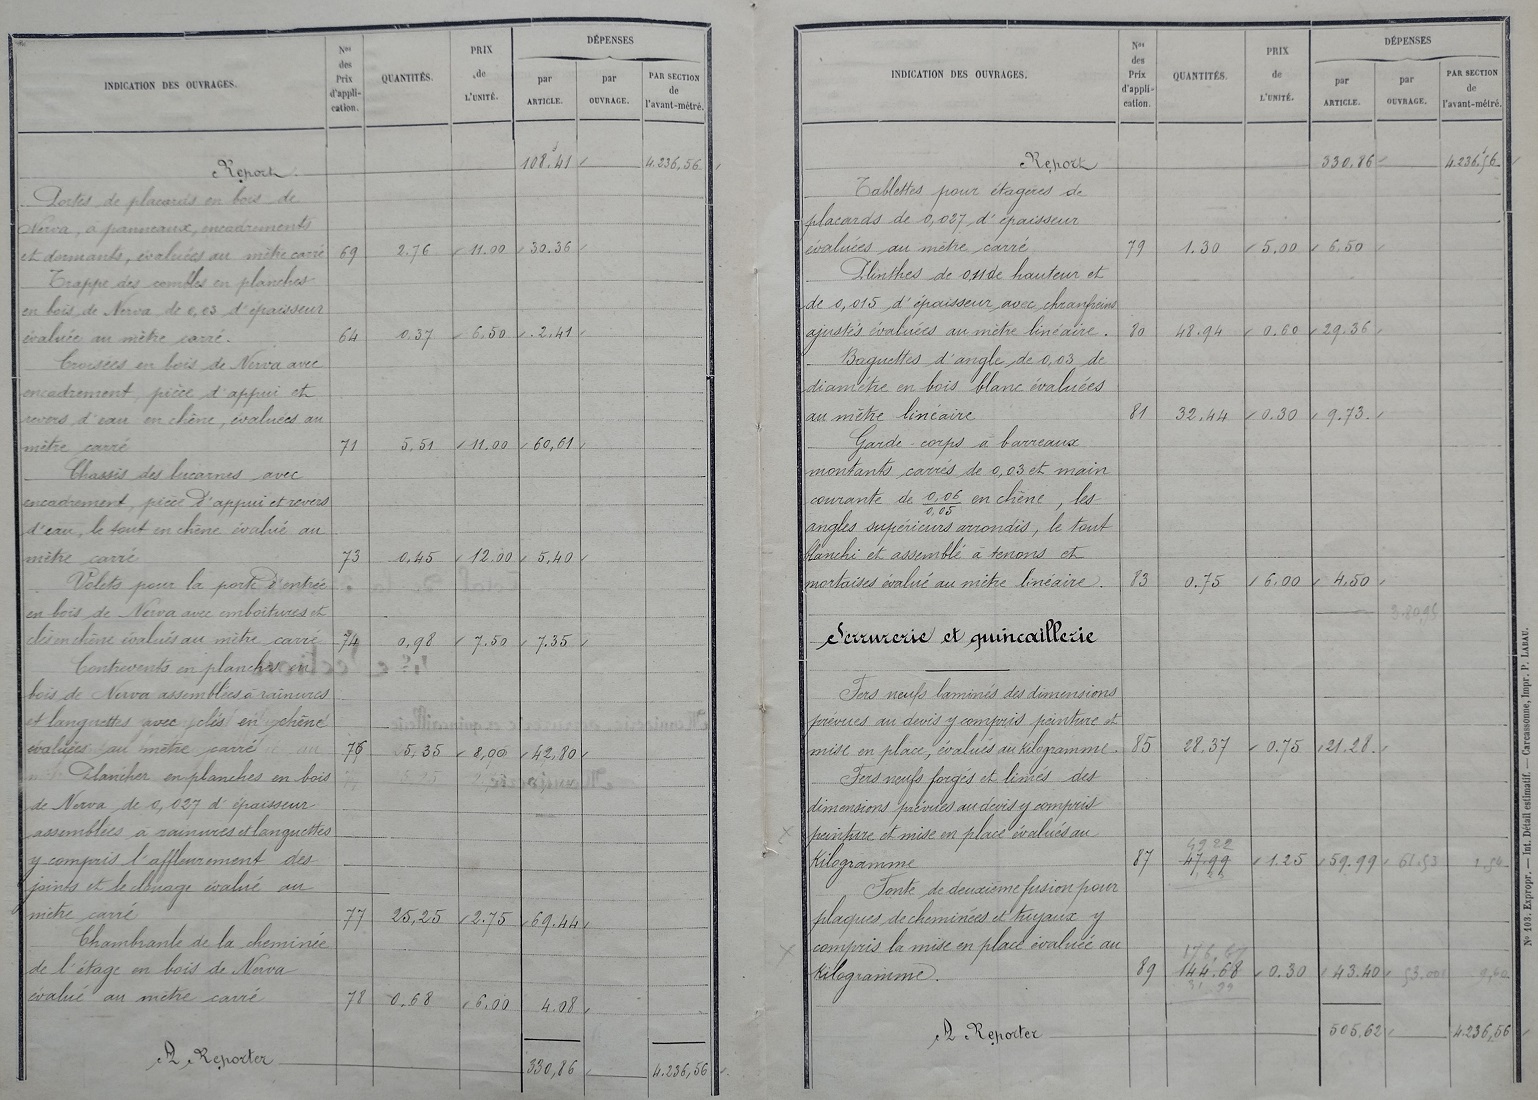 INDICATION DES OUVRAGES.
Nos des Prix d'appli-cation.
QUANTITÉS.
PRIX de L'UNITÉ.
DÉPENSES
par ARTICLE.
par OUVRAGE.
PAR SECTION de l'avant-métré.
Report 108,41 4.236,56
Portes de placards en bois de
Nerva, à panneaux, encadrements
et dormants, évaluées au mètre carré 69 2.76 11.00 30.36
Trappe des combles en planches
en bois de Nerva, de 0,03 d'épaisseur
évaluée au mètre carré. 64 0.37 6.50 2.41
Croisées en bois de Nerva avec
encadrement, pièce d'appui et
revers d'eau en chêne, évaluées au
mètre carré 71 5.51 11.00 60,61
Chassis des lucarnes avec
encadrement, pièce d'appui et revers
d'eau, le tout en chêne évalué au
mètre carré 73 0.45 12.00 5,40
Volets pour la porte d'entrée
en bois de Nerva avec emboitures et
clés en chêne évalués au mètre carré 74 0,98 7.50 7.35
Contrevents en planches en
bois de Nerva assemblées à rainures
et languettes avec clés en chêne
évaluées au mètre carré 76 5.35 8,00 42.80
Plancher en planches en bois
de Nerva de 0,027 d'épaisseur
assemblées à rainures et languettes
y compris l'affleurement des
joints et le clouage évalué au
mètre carré 77 25,25 2.75 69.44
Chambranle de la cheminée
de l'étage en bois de Nerva
évalué au mètre carré 78 0.68 6.00 4.08
A Reporter 330,86 4.236,56
INDICATION DES OUVRAGES.
Nos des Prix d'appli-cation.
QUANTITÉS.
PRIX de L'UNITÉ.
DÉPENSES
par ARTICLE.
par OUVRAGE.
PAR SECTION de l'avant-métré.
Report 330,86 4.236,56
Tablettes pour étagères de
placards de 0,027 d'épaisseur
évaluées au mètre carré 79 1.30 5.00 6.50
Plinthes de 0,11 de hauteur et
de 0,015 d'épaisseur avec chanfreins
ajustés évaluées au mètre linéaire. 80 48.94 0.60 29.36
Baguettes d'angle de 0,03 de
diamètre en bois blanc évaluées
au mètre linéaire 81 32.44 0.30 9.73
Garde-corps à barreaux
montants carrés de 0,03 et main
courante de 0,06/0,05 en chêne, les
angles supérieurs arrondis, le tout
blanchi et assemblé à tenons et
mortaises évalué au mètre linéaire. 83 0.75 6.00 4.50
380,95
Serrurerie et quincaillerie
Fers neufs laminés des dimensions
prévues au devis y compris peinture et
mise en place, évalués au kilogramme. 85 28.37 0.75 21.28
Fers neufs forgés et limés des
dimensions prévues au devis y compris
peinture et mise en place évalués au
4922
Kilogramme 87 47.99 1.25 59.99 61.53
Fonte de deuxième fusion pour
plaques de cheminées et tuyaux y
compris la mise en place évaluée au
176,67
Kilogramme. 89 144.68 0.30 43.40 53.00
31 99
A Reporter 505,62 4.236,56
N° 103. Expropr. — Int. Détail estimatif. — Carcassonne, Impr. P. LABAU.